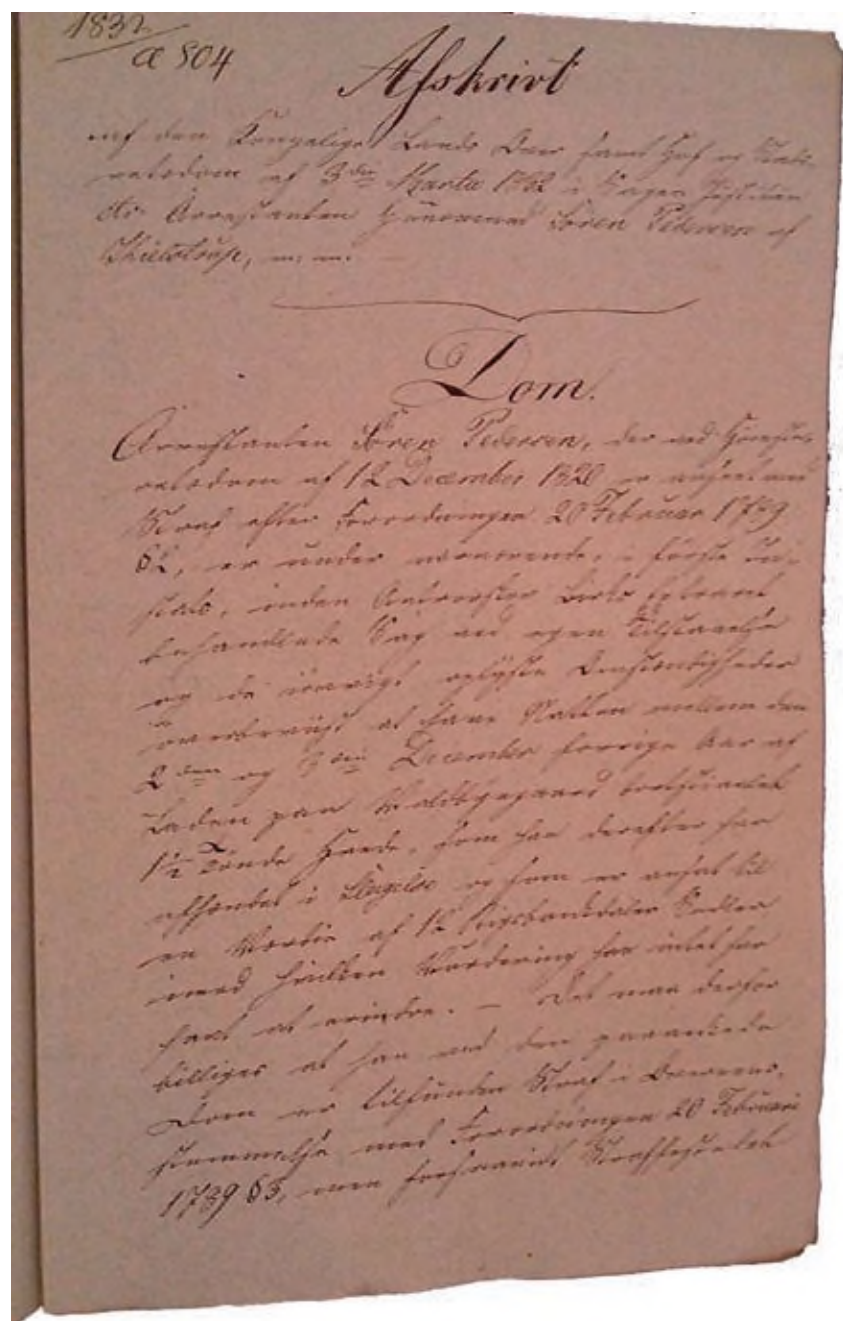 1832
a 504
Afskrivt
af den Kongelige Lands Over samt Hof og Stads-
retsdom af 3die Martii 1832 i Sagen Justitien
ctr. Arrestanten Huusmand Sören Pedersen af
m: m:
Dom.
Arrestanten Sören Pedersen, der ved Höieste-
retsdom af 12 December 1820 er anseet med
Straf efter Forordningen 20 Februar 1789
§2, er under nærværende, i förste In-
stants, inden Antvorskov Birks Extraret
behandlede Sag ved egen Tilstaaelse
og de iövrigt oplyste Omstændigheder
overbeviist at have Natten mellem den
2den og 3die December forrige Aar af
Laden paa Valdbygaard bortstiaalet
1½ Tönde Hvede, som han derefter har
afhændet i Slagelse og som er ansat til
en Værdie af 12 Rigsbankdaler Sedler
imod hvilken Vurdering han intet har
havt at erindre. – Det maa derfor
billiges at han ved den paaankede
Dom er tilfunden Straf i Overeens-
stemmelse med Forordningen 20 Februarii
1789 §3, men Straffestedet